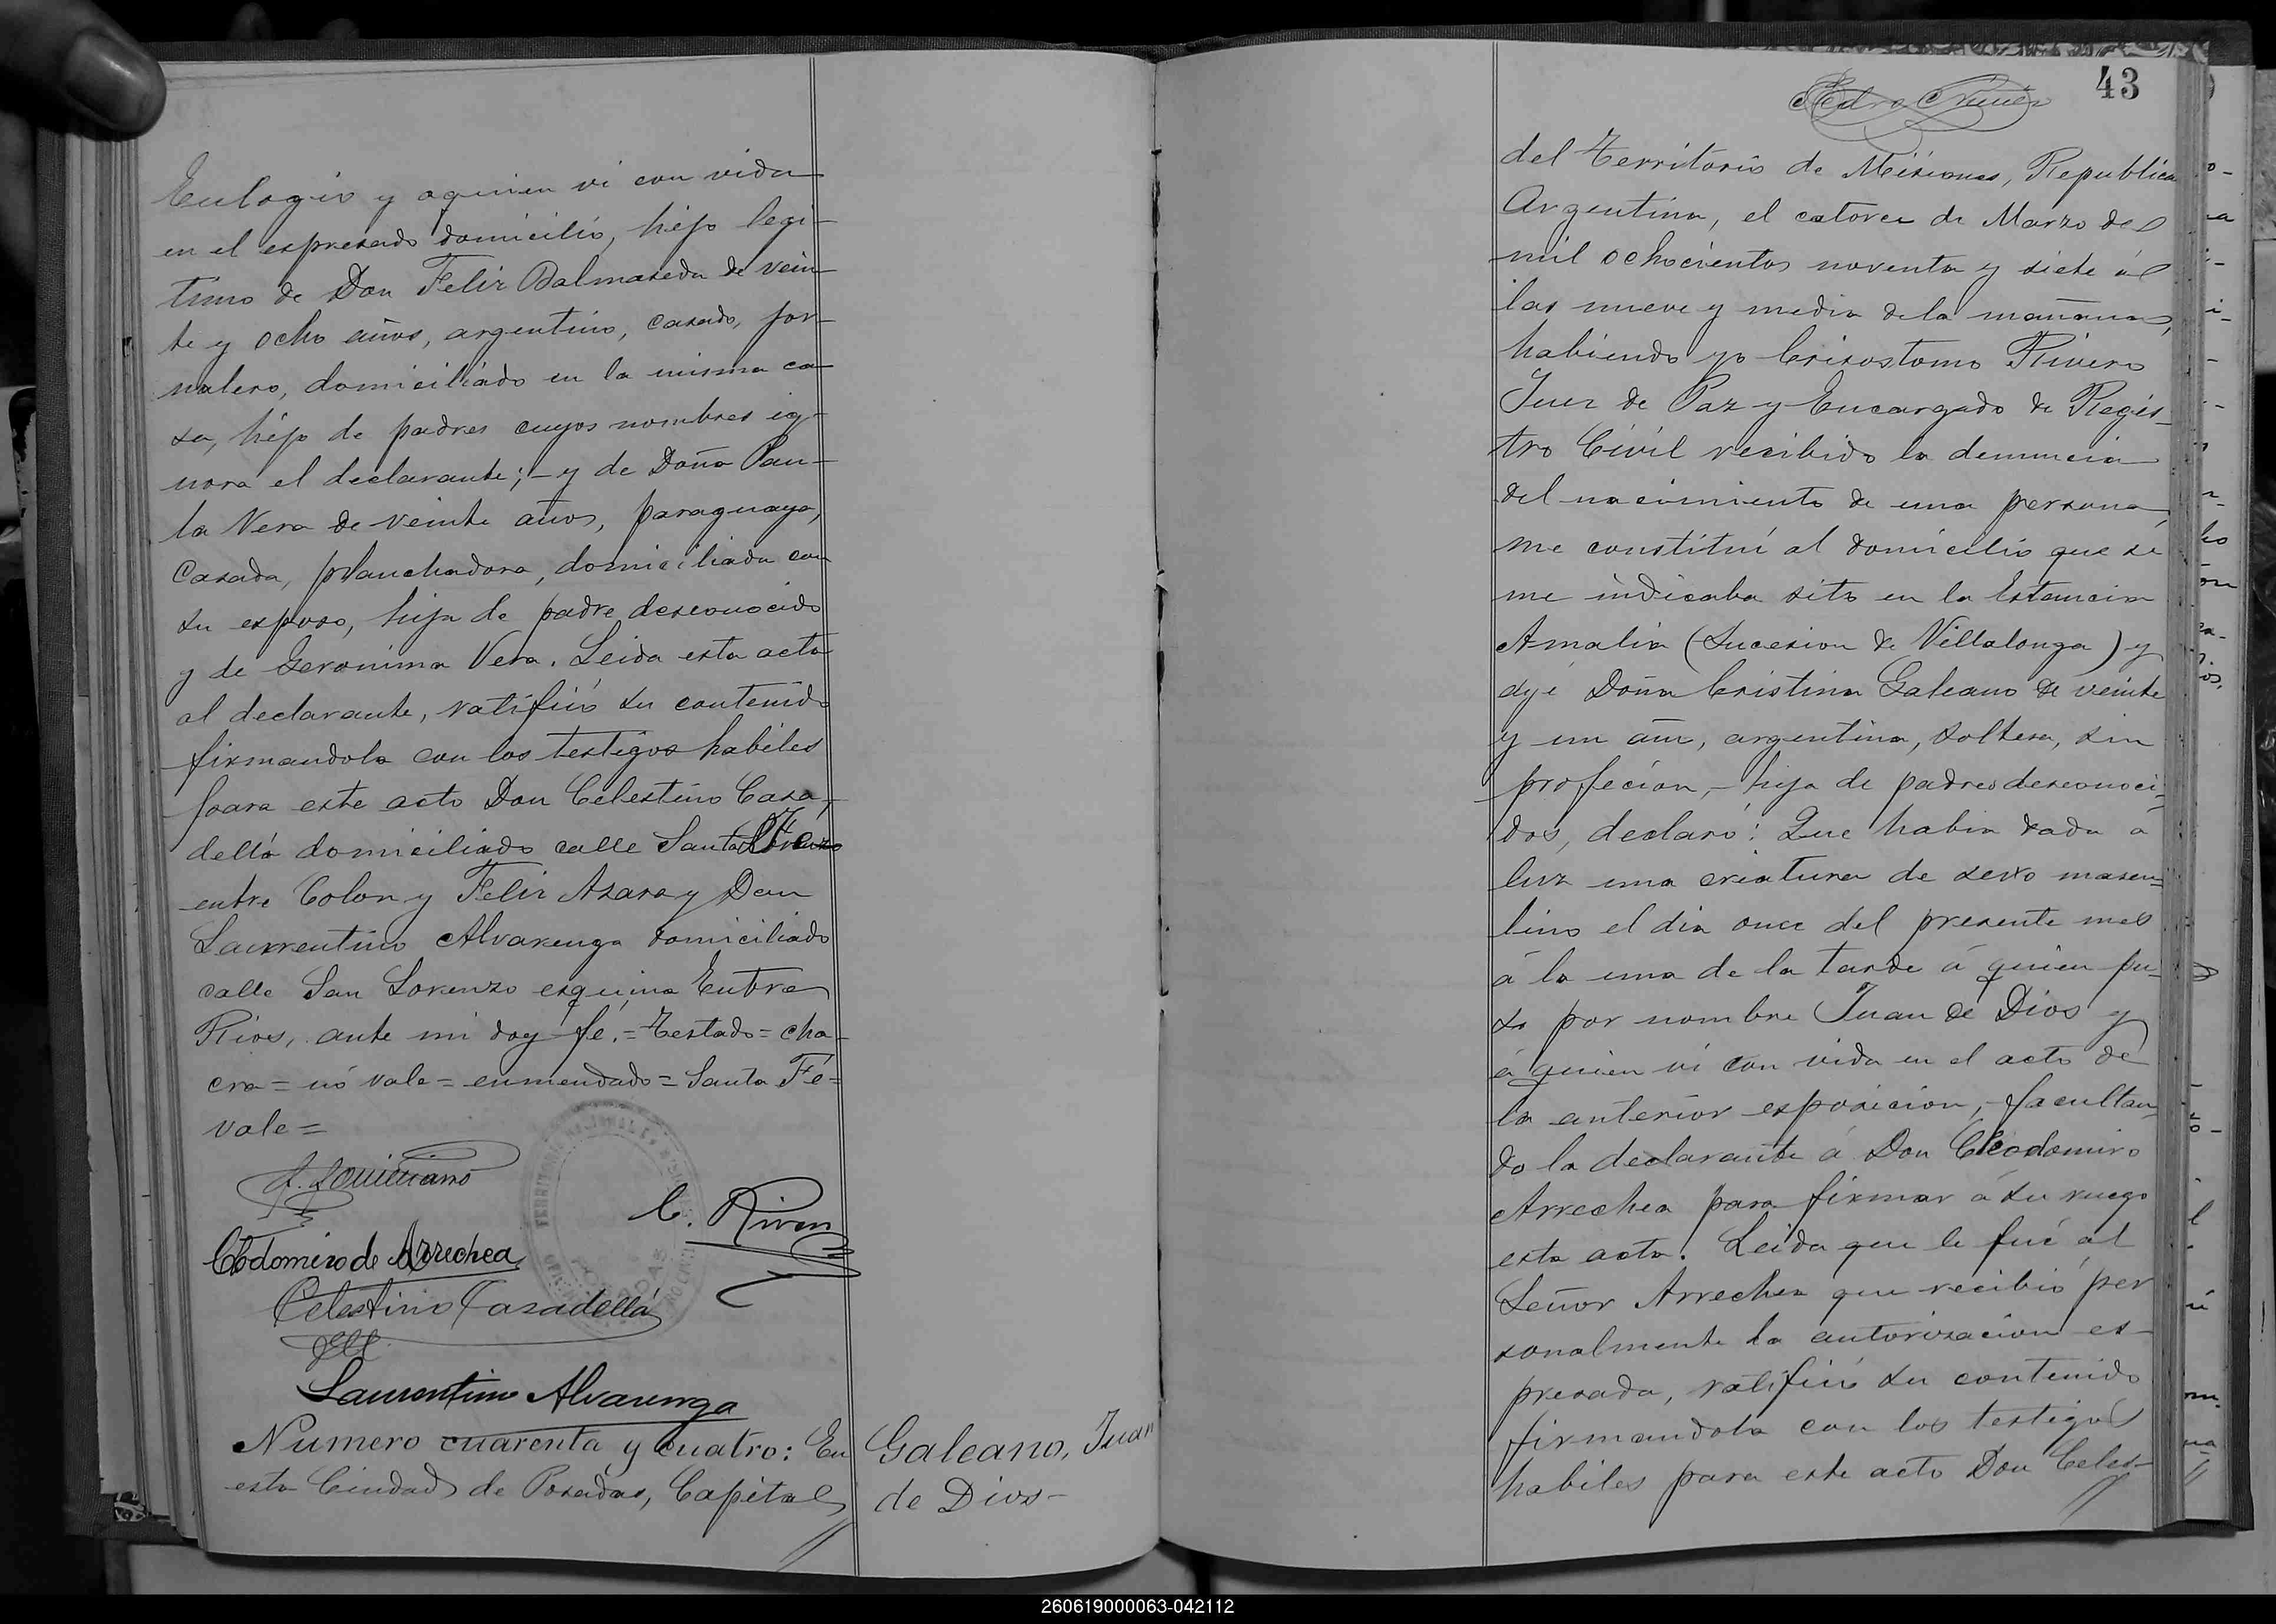 Eulogio y aquien vi con vida
en el espresado domicilio, hijo legi-
timo de Don Felix Balmaseda de vein-
te y ocho años, argentino, casado, jor-
nalero, domiciliado en la misma ca-
sa, hijo de padres cuyos nombres ig-
nora el declarante; - y de Doña Pau-
la Vera de veinte años, paraguaya,
Casada, planchadora, domiciliada con
su esposo, hija de padre desconocido
y de Geronima Vera. Leida esta acta
al declarante, ratificó su contenido
firmandola con los testigos habiles
para este acto Don Celestino Casa-
dellá domiciliado calle Santa Fé
entre Colon y Felix Azara y Don
Laurentino Alvarenga domiciliado
calle San Lorenzo esquina Entre
Rios, ante mi doy fé. = Testado = cha-
cra = nó vale = enmendado = Santa Fé =
vale =
C. Rivero
Clodomiro de Arrechea
Celestino Casadellá
Laurentino Alvarenga
Numero cuarenta y cuatro: En
esta Ciudad de Posadas, Capital
Galeano, Juan
de Dios -
Pedro Nuñez
43
del Territorio de Misiones, Republica
Argentina, el catorce de Marzo de
mil ochocientos noventa y siete á
las nueve y media de la mañana,
habiendo yo Crisostomo Rivero
Juez de Paz y Encargado de Regis-
tro Civil recibido la denuncia
del nacimiento de una persona,
me constituí al domicilio que se
me indicaba sito en la Estancia
Amalia (Sucesion de Villalonga) y
Doña Cristina Galeano de veinte
y un año, argentina, soltera, sin
profecion, - hija de padres desconoci-
dos, declaró: Que habia dado á
luz una criatura de sexo mascu-
lino el dia once del presente mes
á la una de la tarde á quien pu-
so por nombre Juan de Dios y
á quien vi con vida en el acto de
la anterior exposicion, - facultan-
do la declarante á Don Cleodomiro
Arrechea para firmar á su ruego
esta acta. Leida que le fué al
Señor Arrechea que recibió per
sonalmente la autorisacion es-
presada, ratificó su contenido
firmandola con los testigos
habiles para este acto Don Celes-
260619000063-042112